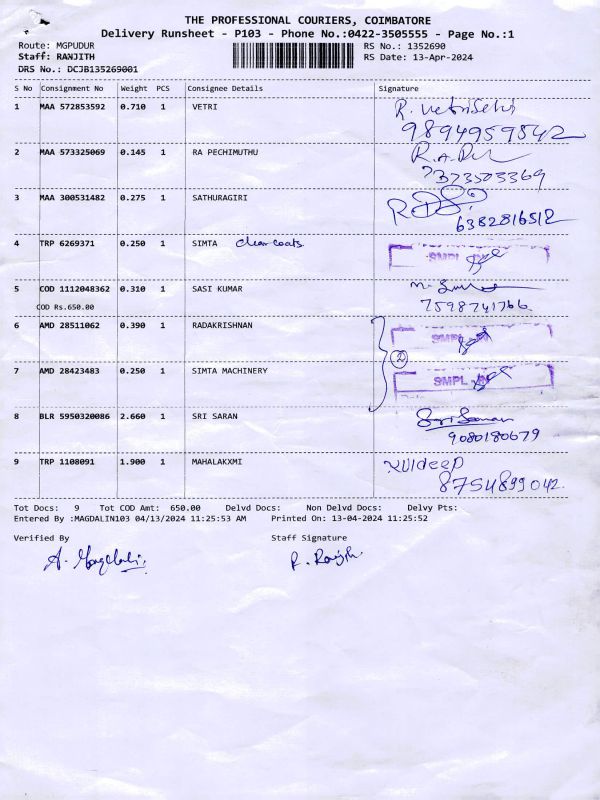 THE PROFESSIONAL COURIERS, COIMBATORE
Delivery Runsheet - P103 - Phone No.:0422-3505555 - Page No.:1
Route: MGPUDUR RS No.: 1352690
Staff: RANJITH RS Date: 13-Apr-2024
DRS No.: DCJB135269001
S No Consignment No Weight PCS Consignee Details Signature
1 MAA 572853592 0.710 1 VETRI R. VetriSelvi
9894959842
2 MAA 573325069 0.145 1 RA PECHIMUTHU
7373503369
3 MAA 300531482 0.275 1 SATHURAGIRI
6382816512
4 TRP 6269371 0.250 1 SIMTA clear coats SMPL
5 COD 1112048362 0.310 1 SASI KUMAR
COD Rs.650.00 7598741766
6 AMD 28511062 0.390 1 RADAKRISHNAN SMPL
2
7 AMD 28423483 0.250 1 SIMTA MACHINERY SMPL
8 BLR 5950320086 2.660 1 SRI SARAN Sri Saran
9080180679
9 TRP 1108091 1.900 1 MAHALAKXMI kuldeep
8754899042
Tot Docs: 9 Tot COD Amt: 650.00 Delvd Docs: Non Delvd Docs: Delvy Pts:
Entered By :MAGDALIN103 04/13/2024 11:25:53 AM Printed On: 13-04-2024 11:25:52
Verified By Staff Signature
A. Magdalin R. Ranjith